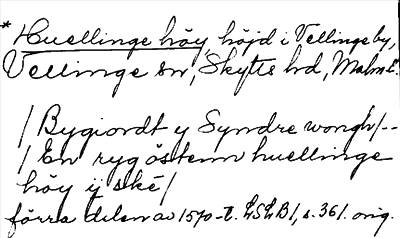 * Huellinge höy, höjd i Vellinge by,
Vellinge sn, Skytts hd, Malm. l.
/ Bygiordt y Syndre wongh / --
/ En ryg östenn huellinge
höy ij ske /
förra delen av 1570-t. LSLB1, s. 361. orig.